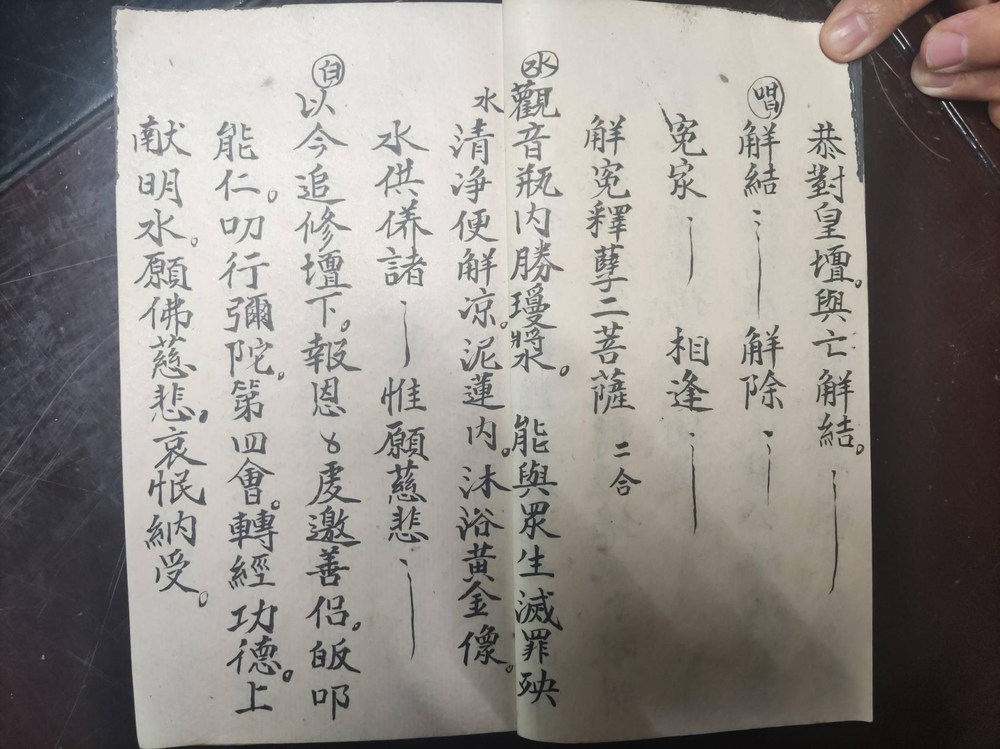 恭對皇壇。與亡解結。
唱 解結 解除
冤家 相逢
解冤釋孽二菩薩 二合
水 觀音瓶内勝瓊漿。能與眾生滅罪殃
水清净便解凉。泥蓮内。沐浴黄金像。
水供養諸 惟願慈悲
白 以今追修壇下。報恩 虔邀善侣。皈叩
能仁。叨行彌陀。第四會。轉經功德。上
献明水。願佛慈悲。哀愍納受。